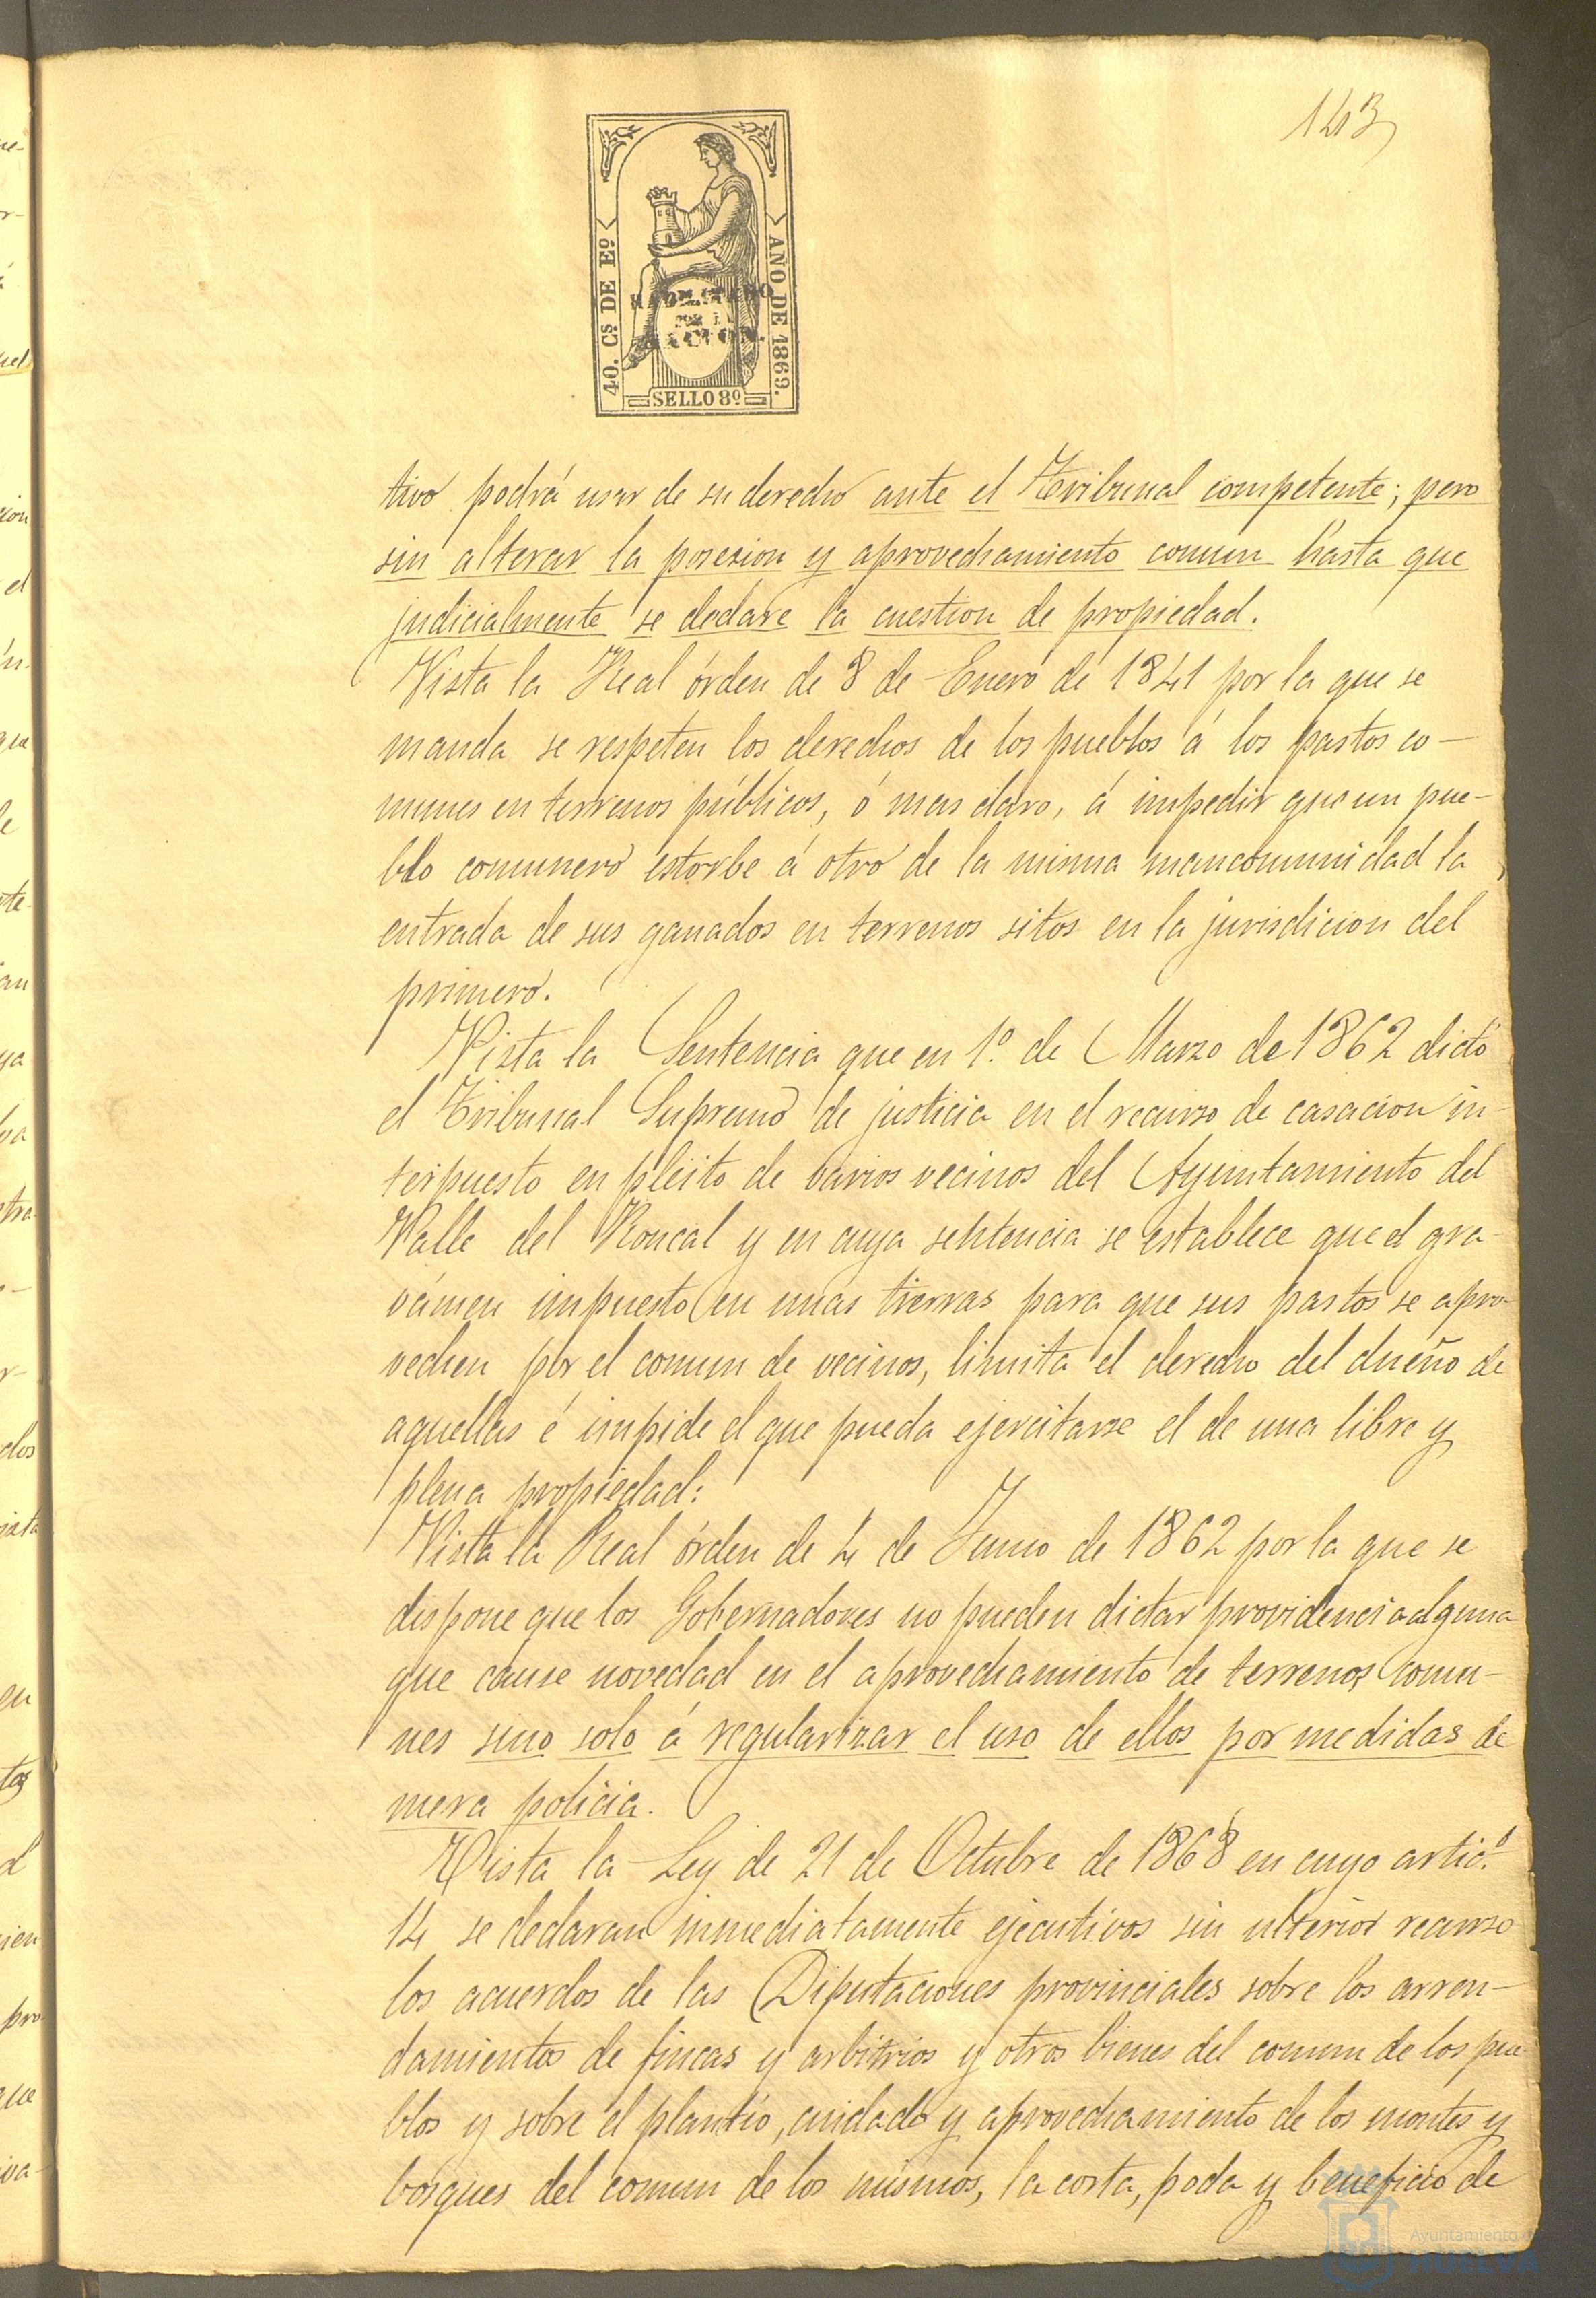 143
40. Cs DE Eº
AÑO DE 1869.
HABILITADO
POR LA
NACION.
SELLO 8º
tivo podrá usar de su derecho ante el Tribunal competente; pero
sin alterar la posesion y aprovechamiento comun hasta que
judicialmente se declare la cuestion de propiedad.
Vista la Real órden de 8 de Enero de 1841 por la que se
manda se respeten los derechos de los pueblos á los pastos co-
munes en terrenos públicos, ó mas claro, á impedir que un pue-
blo comunero estorbe á otro de la misma mancomunidad la
entrada de sus ganados en terrenos sitos en la jurisdicion del
primero.
Vista la Sentencia que en 1º. de Marzo de 1862 dictó
el Tribunal Supremo de justicia en el recurso de casacion in-
terpuesto en pleito de varios vecinos del Ayuntamiento del
Valle del Roncal y en cuya sentencia se establece que el gra-
vámen impuesto en unas tierras para que sus pastos se apro-
vechen por el comun de vecinos, limita el derecho del dueño de
aquellas é impide el que pueda ejercitarse el de una libre y
plena propiedad:
Vista la Real órden de 4 de Junio de 1862 por la que se
dispone que los Gobernadores no pueden dictar providencia alguna
que cause novedad en el aprovechamiento de terrenos comu-
nes sino solo á regularizar el uso de ellos por medidas de
mera policia.
Vista la Ley de 21 de Octubre de 1868 en cuyo artic.º
14 se declaran inmediatamente ejecutivos sin ulterior recurso
los acuerdos de las Diputaciones provinciales sobre los arren-
damientos de fincas y arbitrios y otros bienes del comun de los pue-
blos y sobre el plantío, cuidado y aprovechamiento de los montes y
bosques del comun de los mismos, la corta, poda y beneficio de
Ayuntamiento de
HUELVA